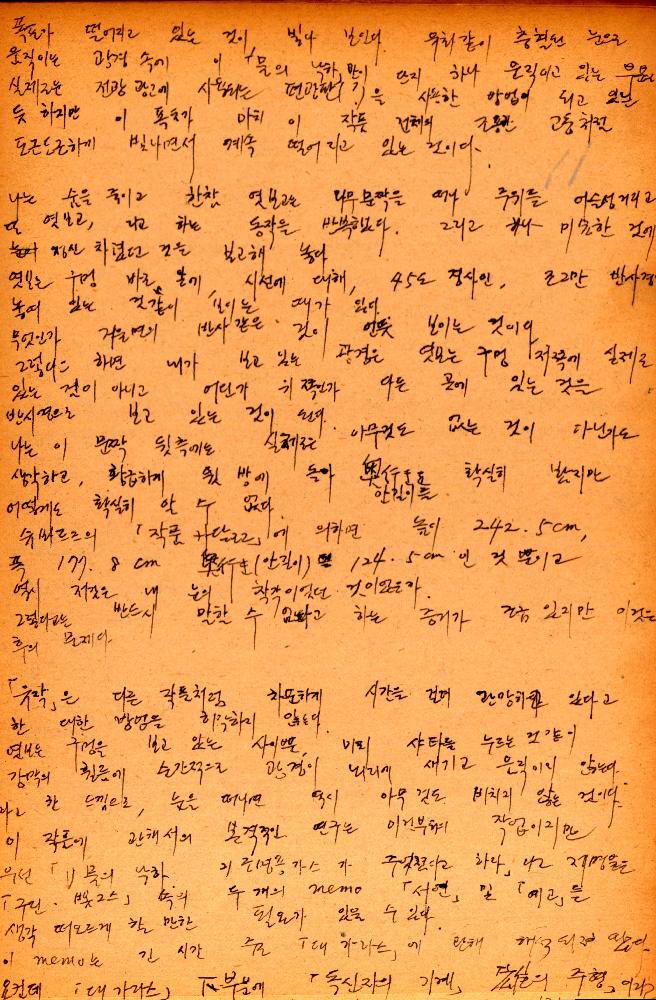 폭포가 떨어지고 있는 것이 빛나 보인다. 우리같이 충혈된 눈으로
움직이는 광경 속에 이 「물의 낙하」만이 단지 하나 움직이고 있는 부분
실제로는 전광 광고에 사용되는 전광판(?)을 사용한 방법이 되고 있는
듯 하지만 이 폭포가 마치 이 작품 전체의 조용한 고동처럼
도근도근하게 빛나면서 계속 떨어지고 있는 것이다.
나는 숨을 죽이고 한참 엿보고는 나무문짝을 떠나 주위를 어슬렁거리고
또 엿보고, 나고 하는 동작을 반복했다. 그리고 하나 미묘한 것에
정신 차렸던 것을 보고해 놓다
엿보는 구멍 바로 앞에, 시선에 대해, 45도 경사인, 조그만 반사경
놓여 있는 것같이 보이는 때가 있다
무엇인가 거울면의 반사 같은 것이 언뜻 보이는 것이다
그렇다고 하면 내가 보고 있는 광경은 엿보는 구멍 저쪽에 실제로
있는 것이 아니고 어딘가 위쪽인가 다른 곳에 있는 것을
반사경으로 보고 있는 것이 된다.
나는 이 문짝 뒷측에는 실제로는 아무것도 없는 것이 아닌가도
생각하고, 황급하게 뒷 방에 돌아 奥行도 확실히 봤지만
안길이를
어떻게도 확실히 알 수 없다.
슈바르츠의 「작품 카달로그」에 의하면 높이 242.5cm,
폭 177.8cm 奥行き(안길이) 124.5cm인 것 뿐이고
역시 저것은 내 눈의 착각이었던 것이었는가.
그렇다고는 반드시 말할 수 없다고 하는 증거가 조금 있지만 이것은
후의 문제다.
「유작」은 다른 작품처럼 차분하게 시간을 걸려 관망하고 있다고
한 대한 방법을 허락하지 않는다.
엿보는 구멍을 보고 있는 사이에, 마치 샤타를 누르는 것 같이
망막의 필름에 순간적으로 광경이 뇌리에 새기고 움직이지 않는다.
라고 한 느낌으로, 눈을 떼면 역시 아무 것도 비치지 않는 것이다.
이 작품에 관해서의 본격적인 연구는 이것부터의 작업이지만
우선 「1) 물의 낙하 2) 조명용가스 가 주어진다고 하다」라고 제명을
「구린·박스」 속의 두 개의 memo 「서언」 및 「예고」를
생각 떠오르게 할 만한 필요가 있을 수 있다.
이 memo는 긴 시간 주로 「대가라스」에 관해 해석되져 있다.
요컨데 「대가라스」 下부분에 「독신자의 기계」, 주형, 이라